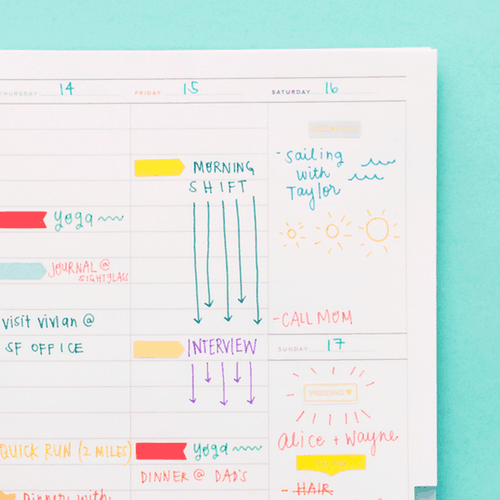 THURSDAY 14
Yoga
JOURNAL @
SIGHTGLASS
visit vivian @
SF OFFICE
QUICK RUN (2 MILES)
Dinner with
FRIDAY 15
MORNING
SHIFT
INTERVIEW
Yoga
DINNER @ DAD'S
SATURDAY 16
- Sailing
with
Taylor
- CALL MOM
SUNDAY 17
WEDDING
Alice + Wayne
- HAIR